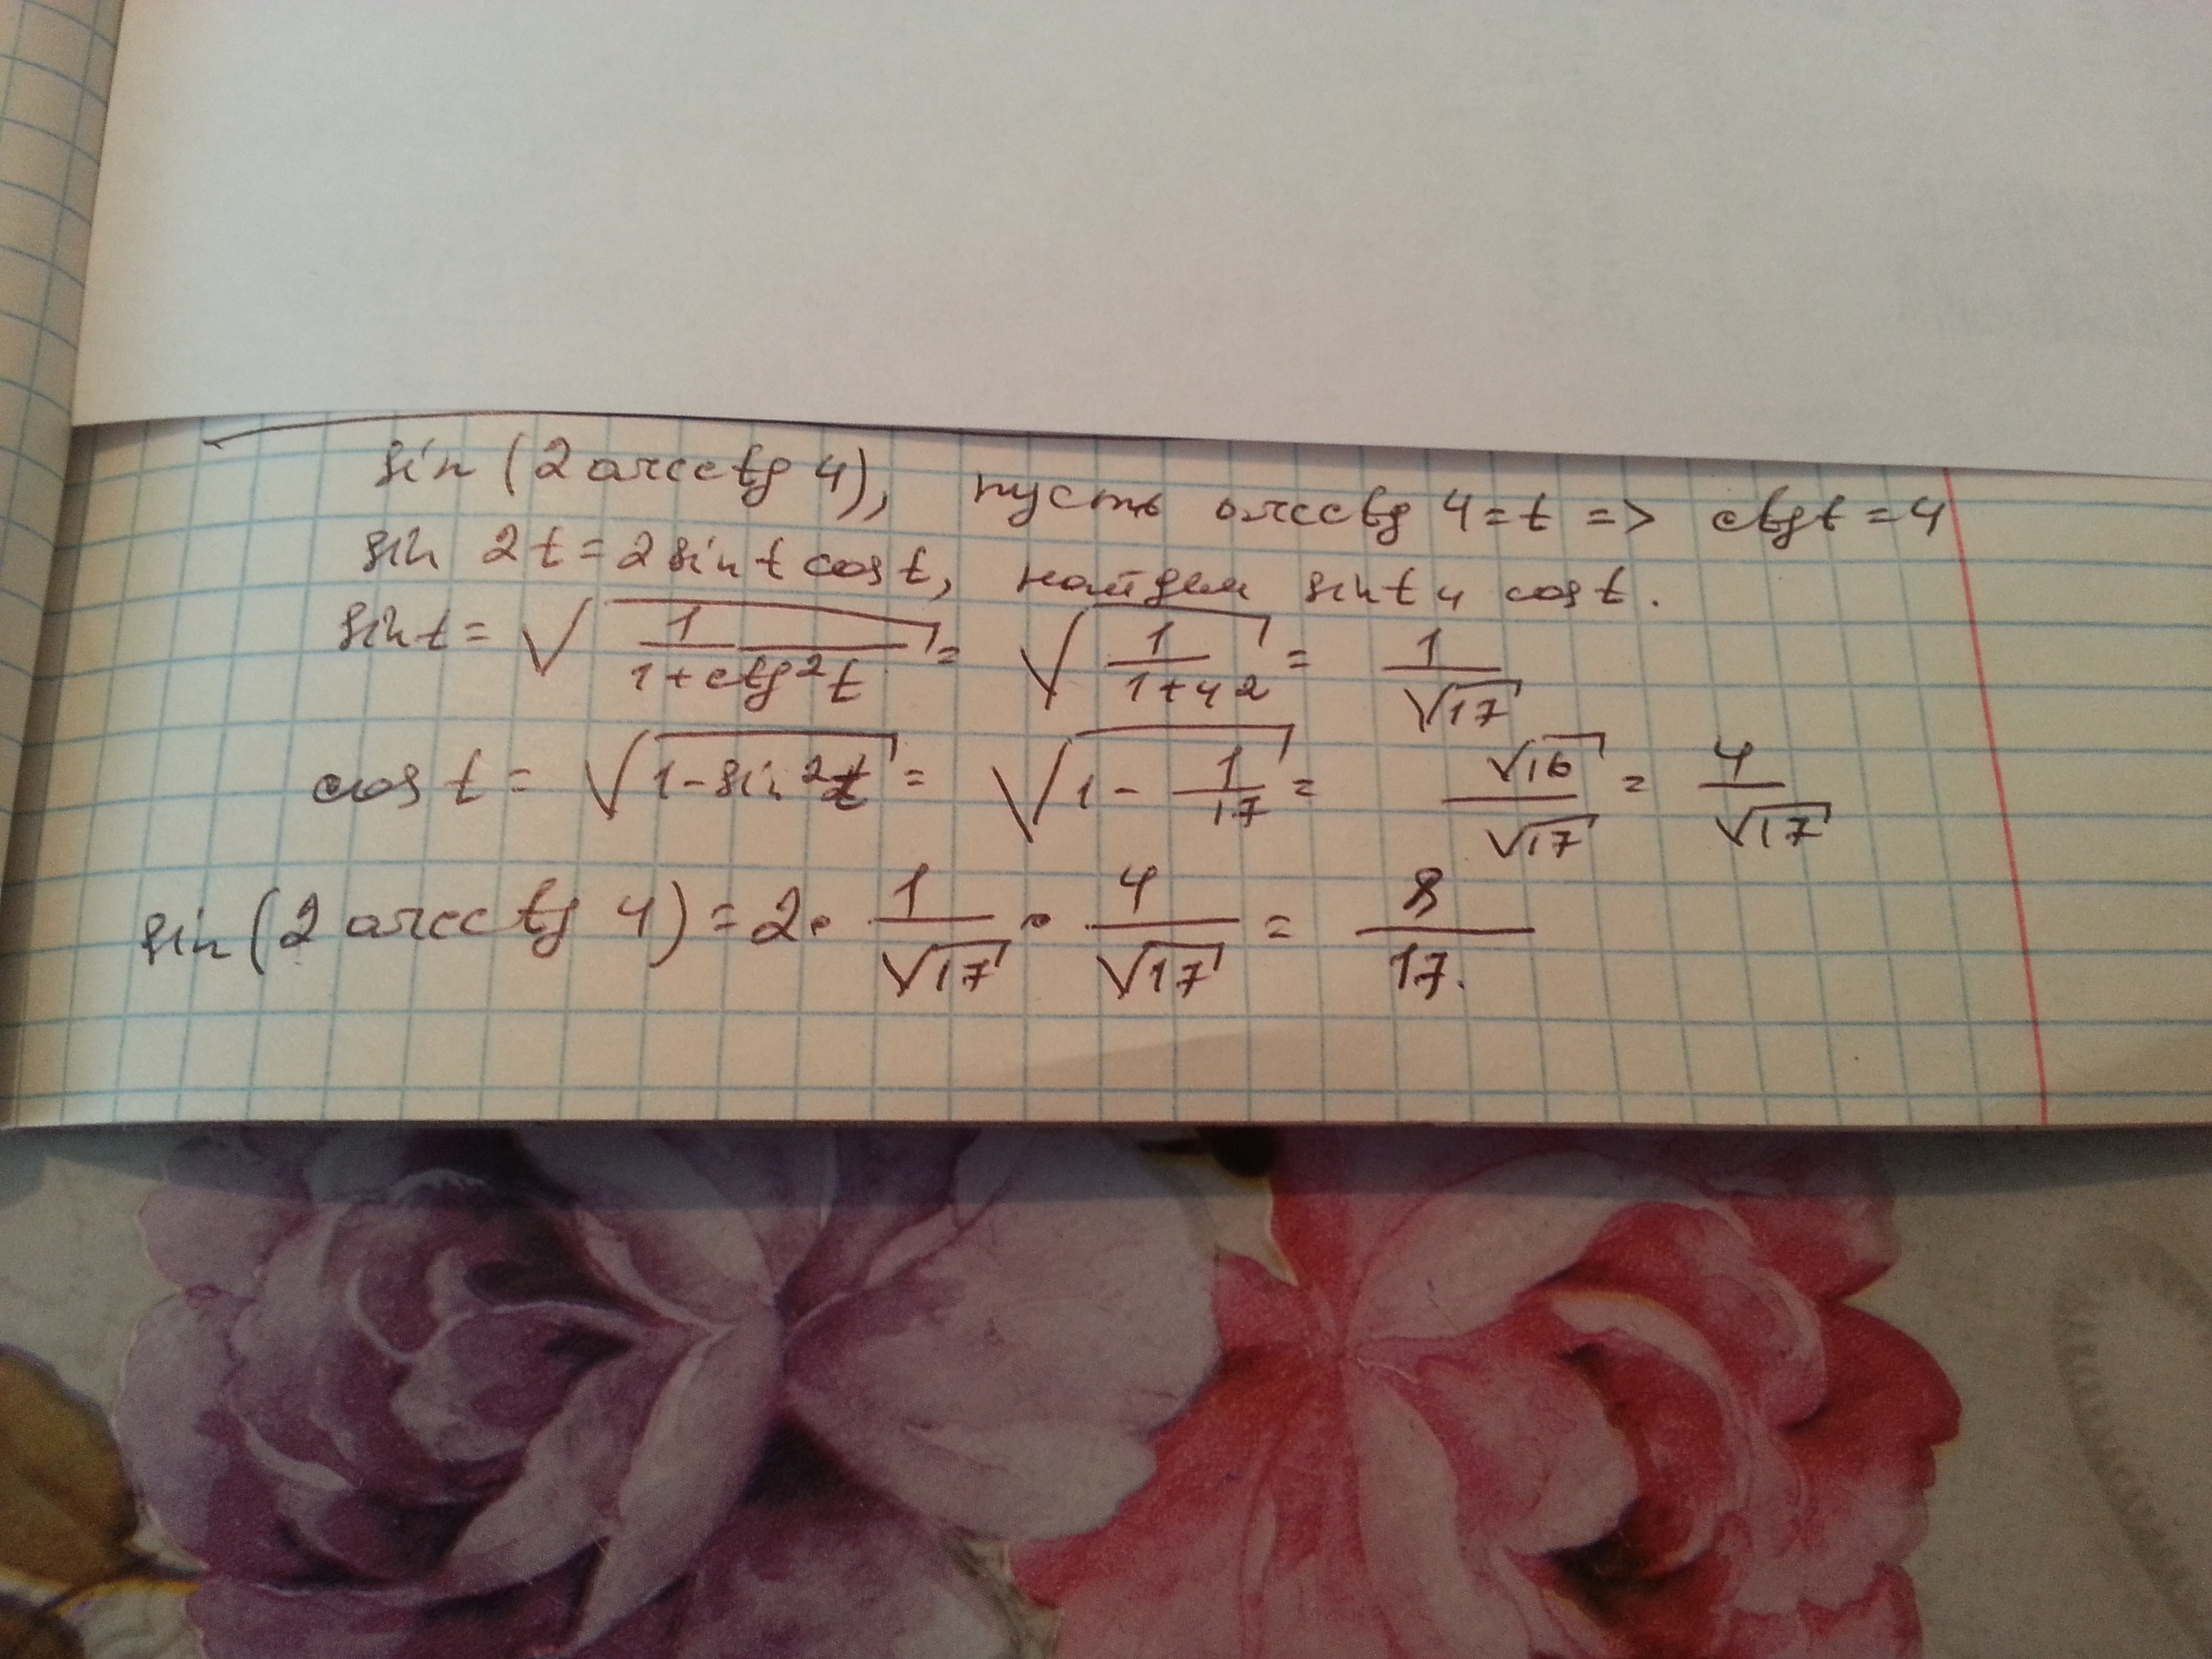 sin (2 arcctg 4), пусть arcctg 4 = t => ctg t = 4
sin 2t = 2 sin t cos t, найдем sin t и cos t.
sin t = √(1/(1+ctg²t)) = √(1/(1+4²)) = 1/√17
cos t = √(1-sin²t) = √(1 - 1/17) = √16/√17 = 4/√17
sin (2 arcctg 4) = 2 · 1/√17 · 4/√17 = 8/17.